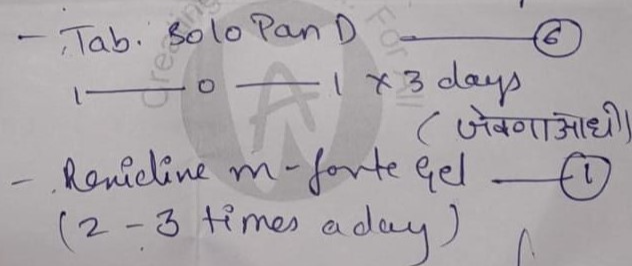 - Tab. Solo Pan D — 6
1 — 0 — 1 x 3 days
(जेवणाआधी)
- Renidine m-forte Gel — 1
(2 - 3 times a day)